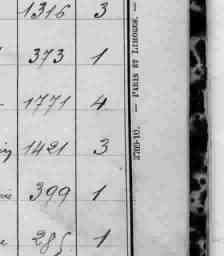 1316 3
373 1
1771 4
1421 3
399 1
285 1
3769-10. — PARIS ET LIMOGES. —